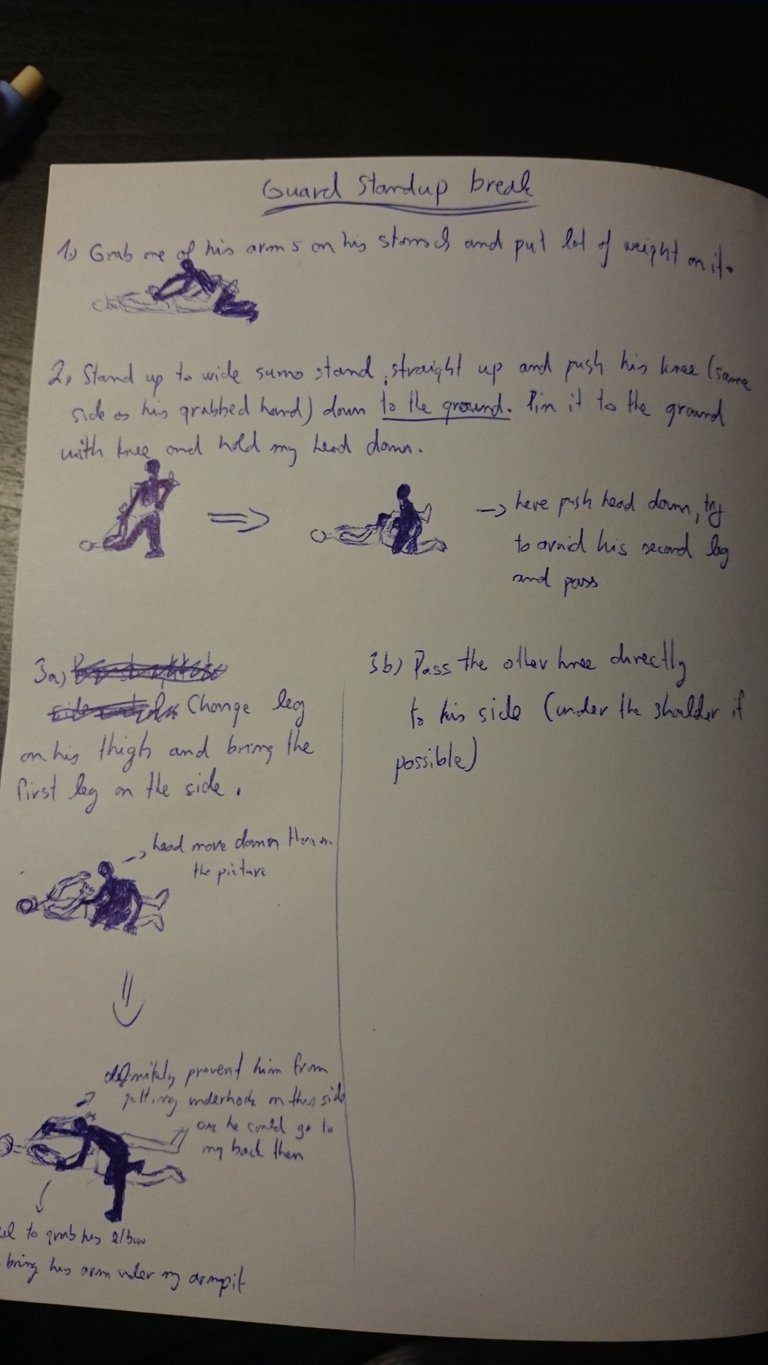 Guard standup break
1, Grab one of his arms on his stomach and put lot of weight on it.
2, Stand up to wide sumo stand, straight up and push his knee (same
side as his grabbed hand) down to the ground. Pin it to the ground
with knee and hold my head down.
=> → here push head down, try
to avoid his second leg
and pass
3a) Change leg
on his thigh and bring the
first leg on the side.
→ head move down then on
the picture
definitely prevent him from
getting underhook on this side
as he could go to
my back then
to grab his elbow
bring his arm under my armpit
3b) Pass the other knee directly
to his side (under the shoulder if
possible)